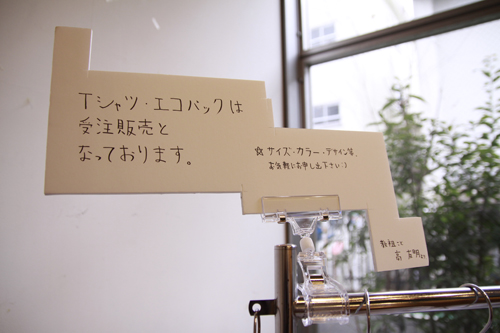 Tシャツ・エコバックは
受注販売と
なっております。
☆サイズ・カラー・デザイン等、
お気軽にお申し出下さい:)